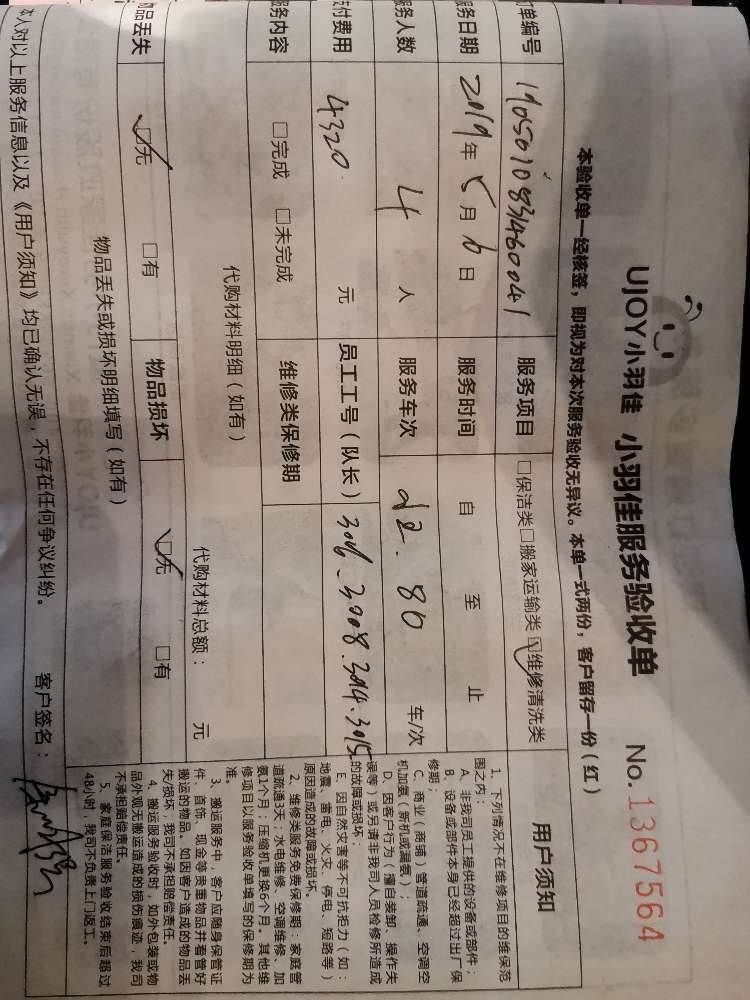 UJOY小羽佳 小羽佳服务验收单 No.1367564
本验收单一经核签，即视为对本次服务验收无异议。本单一式两份，客户留存一份（红）
订单编号 1905010831460041 服务项目 □保洁类□搬家运输类☑维修清洗类
服务日期 2019年5月6日 服务时间 自 至 止
服务人数 4人 服务车次 80 车/次
支付费用 4320 元 员工工号（队长） 3016.3008.3014.3015
服务内容 □完成 □未完成 维修类保修期
代购材料明细（如有） 代购材料总额： 元
物品丢失 ☑无 □有 物品损坏 ☑无 □有
物品丢失或损坏明细填写（如有）
本人对以上服务信息以及《用户须知》均已确认无误，不存在任何争议纠纷。 客户签名：
用户须知
1、下列情况不在维修项目的维保范
围之内：
A、非我司员工提供的设备或部件；
B、设备或部件本身已经超过出厂保
修期；
C、商业（商铺）管道疏通、空调空
机加氨（新机或漏氨）；
D、因客户行为（擅自装卸、操作失
误等）或另请非我司人员检修所造成
的故障或损坏；
E、因自然灾害等不可抗拒力（如：
地震、雷电、火灾、停电、短路等）
原因造成的故障或损坏。
2、维修类服务免费保修期：家庭管
道疏通3天；水电维修、空调维修、加
氨1个月；压缩机更换6个月。其他维
修项目以服务验收单填写的保修期为
准。
3、搬运服务中，客户应随身保管证
件、首饰、现金等贵重物品并看管好
搬运的物品，如因客户造成的物品丢
失/损坏，我司不承担赔偿责任。
4、搬运服务验收时，如外包装或物
品外观无搬运造成的损伤痕迹，我司
不承担赔偿责任。
5、家庭保洁服务验收结束后超过
48小时，我司不负责上门返工。